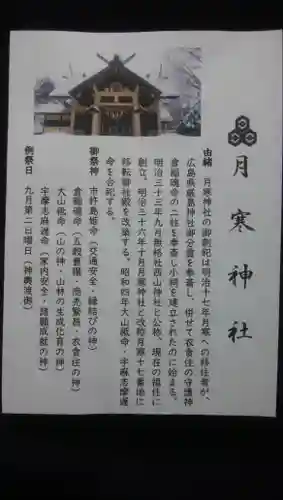 月寒神社
由緒 月寒神社の御創祀は明治十七年月寒への移住者が、
広島県厳島神社御分霊を奉斎し、併せて衣食住の守護神
倉稲魂命の二柱を奉斎し小祠を建立されたのに始まる。
明治三十三年九月無格社西山神社と公称、現在の福住に
創立。明治三十六年十月月寒神社と改称月寒十七番地に
移転御社殿を改築する。昭和四年大山祇命・宇麻志摩遅
命を合祀する。
御祭神 市杵島姫命(交通安全・縁結びの神)
倉稲魂命(五穀豊穣・商売繁昌・衣食住の神)
大山祇命(山の神・山林の生成化育の神)
宇麻志麻遅命(家内安全・諸願成就の神)
例祭日 九月第二日曜日(神輿渡御)